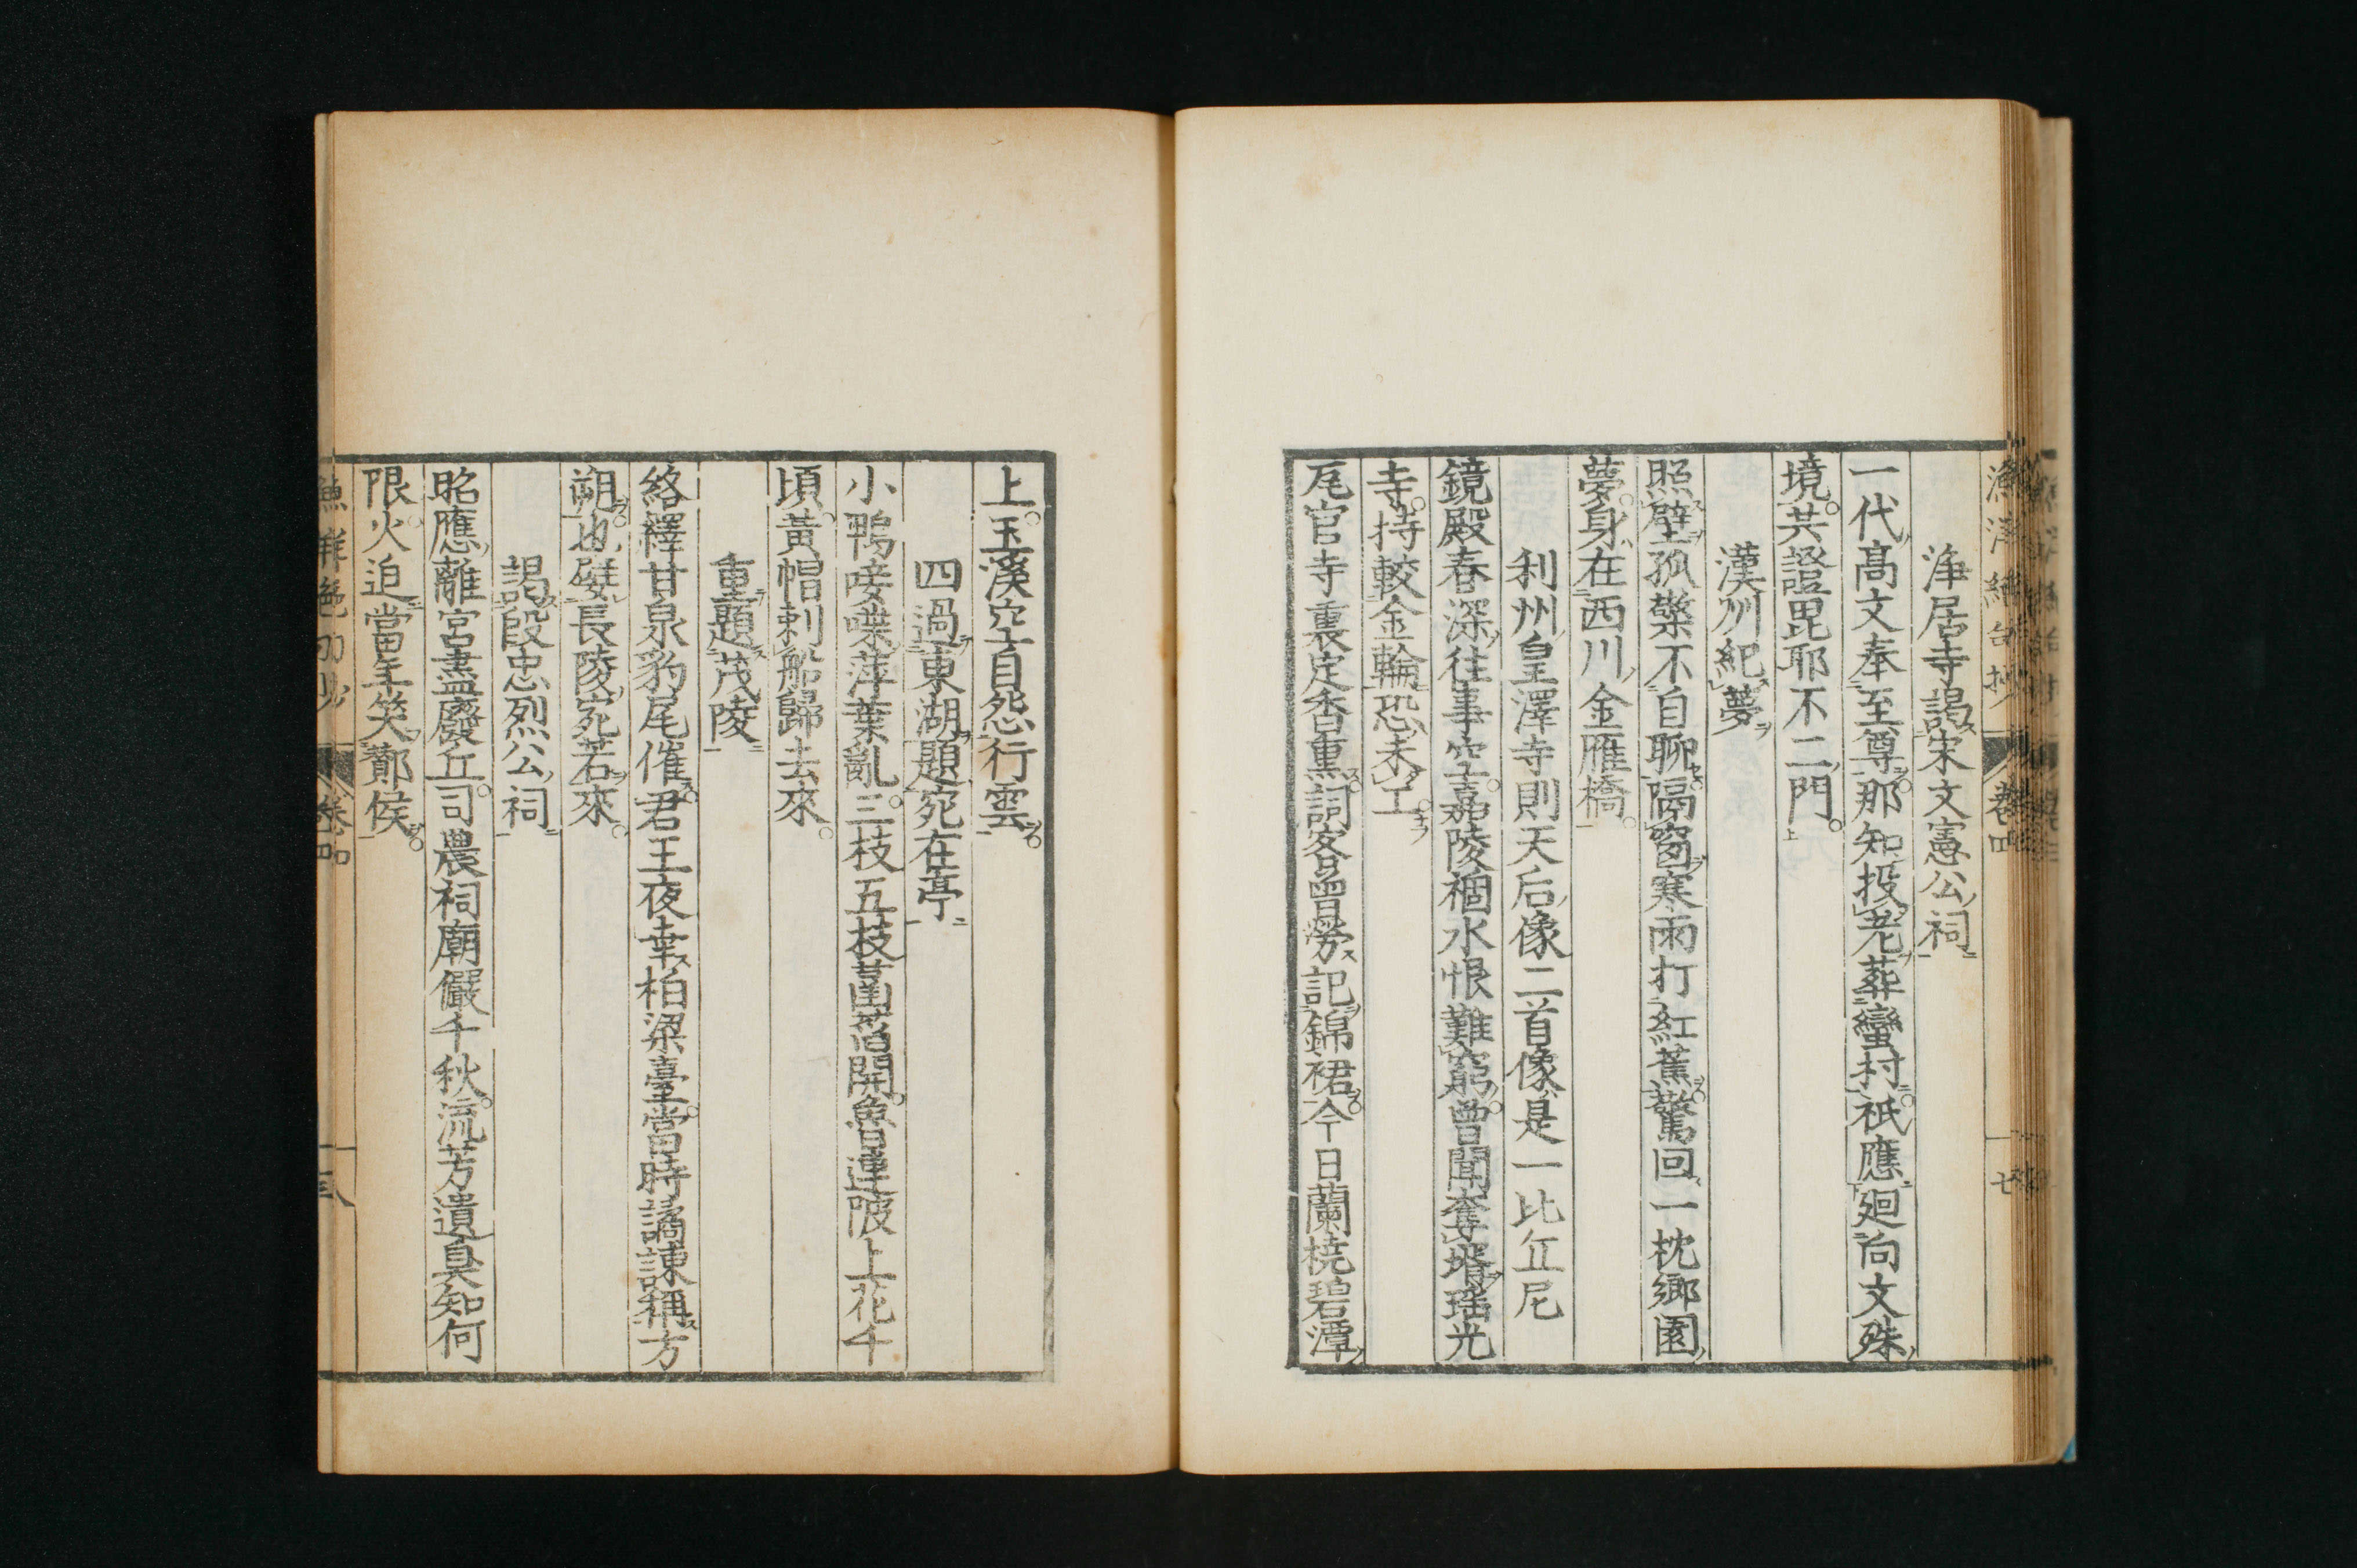 淨居寺謁宋文憲公祠
一代高文奉至尊那知投老葬蠻村祇應廻向文殊
境共證毘耶不二門
漢州紀夢
照壁孤檠不自聊隔窗寒雨打紅蕉驚回一枕鄉園
夢身在西川金雁橋
利州皇澤寺則天后像二首像是一比丘尼
鏡殿春深往事空嘉陵禍水恨難窮曾聞奪壻瑤光
寺持較金輪恐未工
尾官寺裏定香熏詞客曾勞記錦裙今日蘭橈碧潭
上玉溪空自怨行雲
四過東湖題宛在亭
小鴨唼喋萍葉亂三枝五枝菡萏開魚里蓮陂上花千
頃黃帽刺船歸去來
重題茂陵
絡繹甘泉豹尾催君王夜幸柏梁臺當時譎諫稱方
朔也礙長陵宛若來
謁段忠烈公祠
昭應離宮盡廢丘司農祠廟儼千秋流芳遺臭知何
限火迫當年笑酇侯
卷四